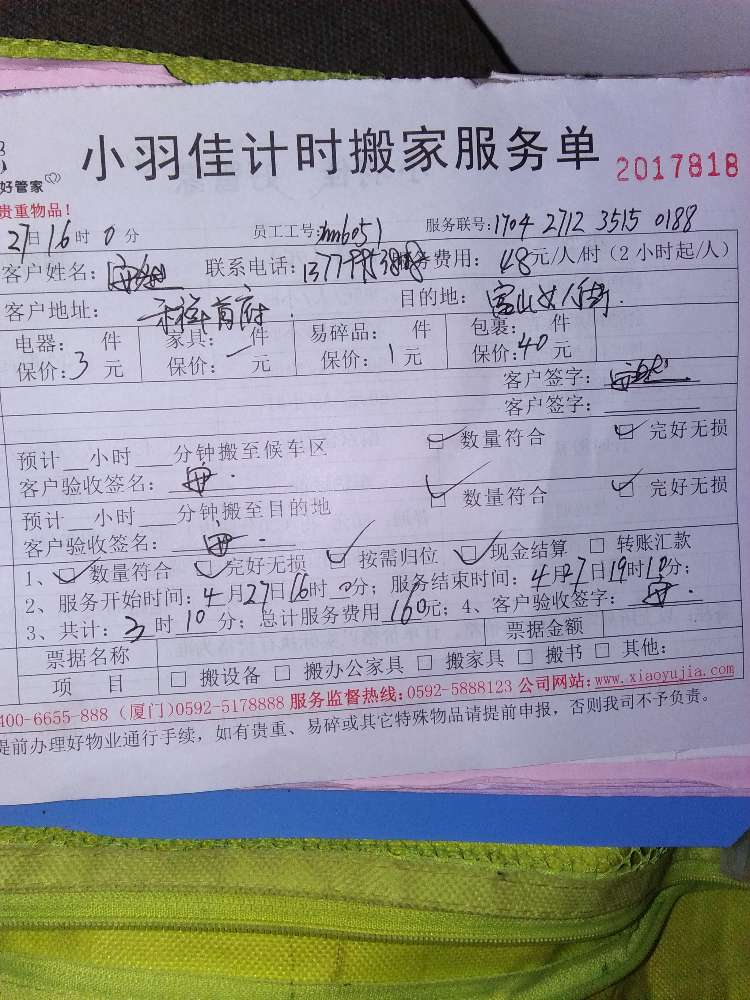 小羽佳计时搬家服务单 2017818
好管家
贵重物品！
27日16时0分 员工工号： 服务联号：1704 2712 3515 0188
客户姓名： 联系电话： 服务费用：48元/人/时（2小时起/人）
客户地址： 目的地：富山女人街
电器： 件 家具： 件 易碎品： 件 包裹： 件
保价：3元 保价：一元 保价：1元 保价：40元
客户签字：
客户签字：
预计__小时__分钟搬至候车区 ☑ 数量符合 ☑ 完好无损
客户验收签名：
预计__小时__分钟搬至目的地 ☑ 数量符合 ☑ 完好无损
客户验收签名：
1、☑数量符合 ☑完好无损 ☑按需归位 ☑现金结算 □ 转账汇款
2、服务开始时间：4月27日16时0分；服务结束时间：4月27日19时10分；
3、共计：3时10分；总计服务费用160元；4、客户验收签字：
票据名称 票据金额
项 目 □ 搬设备 □ 搬办公家具 □ 搬家具 □ 搬书 □ 其他：
400-6655-888（厦门）0592-5178888 服务监督热线：0592-5888123 公司网站：www.xiaoyujia.com
提前办理好物业通行手续，如有贵重、易碎或其它特殊物品请提前申报，否则我司不予负责。